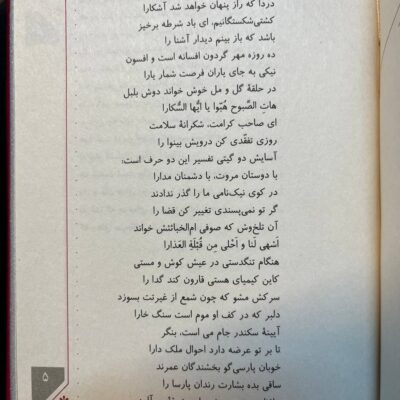 دردا که راز پنهان خواهد شد آشکارا
کشتی‌شکستگانیم، ای باد شرطه برخیز
باشد که باز بینم دیدار آشنا را
ده روزه مهر گردون افسانه است و افسون
نیکی به جای یاران فرصت شمار یارا
در حلقهٔ گل و مل خوش خواند دوش بلبل
هاتِ الصَّبوح هُبّوا یا ایُّها السُّکارا
ای صاحب کرامت، شکرانهٔ سلامت
روزی تفقّدی کن درویش بینوا را
آسایش دو گیتی تفسیر این دو حرف است،
با دوستان مروت، با دشمنان مدارا
در کوی نیک‌نامی ما را گذر ندادند
گر تو نمی‌پسندی تغییر کن قضا را
آن تلخ‌وش که صوفی ام‌الخبائثش خواند
اَشهی لَنا و اَحْلی مِن قُبْلَةِ العَذارا
هنگام تنگدستی در عیش کوش و مستی
کاین کیمیای هستی قارون کند گدا را
سرکش مشو که چون شمع از غیرتت بسوزد
دلبر که در کف او موم است سنگ خارا
آیینهٔ سکندر جام می است، بنگر
تا بر تو عرضه دارد احوال ملک دارا
خوبان پارسی‌گو بخشندگان عمرند
ساقی بده بشارت رندان پارسا را
۵